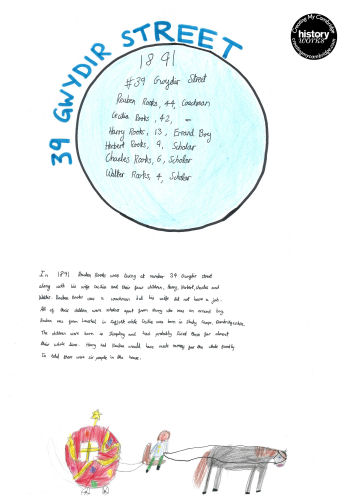 39 GWYDIR STREET
Creating My Cambridge
history
works
creatingmycambridge.com
1891
#39 Gwydir Street
Reuben Rooks, 44, Coachman
Cecilia Rooks, 42, -
Harry Rooks, 13, Errand Boy
Herbert Rooks, 9, Scholar
Charles Rooks, 6, Scholar
Walter Rooks, 4, Scholar
In 1891 Reuben Rooks was living at number 39 Gwydir street
along with his wife Cecilia and their four children, Harry, Herbert, Charles and
Walter. Reuben Rooks was a coachman but his wife did not have a job.
All of their children were scholars apart from Harry who was an errand boy.
Reuben was from in Suffolk while Cecilia was born in Cambridgeshire.
The children were born in and had probably lived there for almost
their whole lives. Harry and Reuben would have made money for the whole family.
In total there were six people in the house.